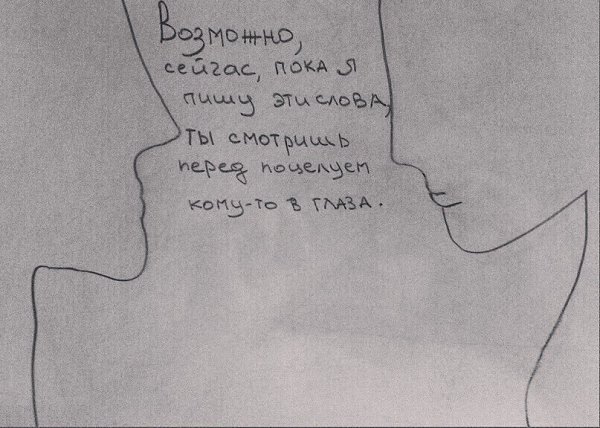 Возможно,
сейчас, пока я
пишу эти слова,
ты смотришь
перед поцелуем
кому-то в глаза.